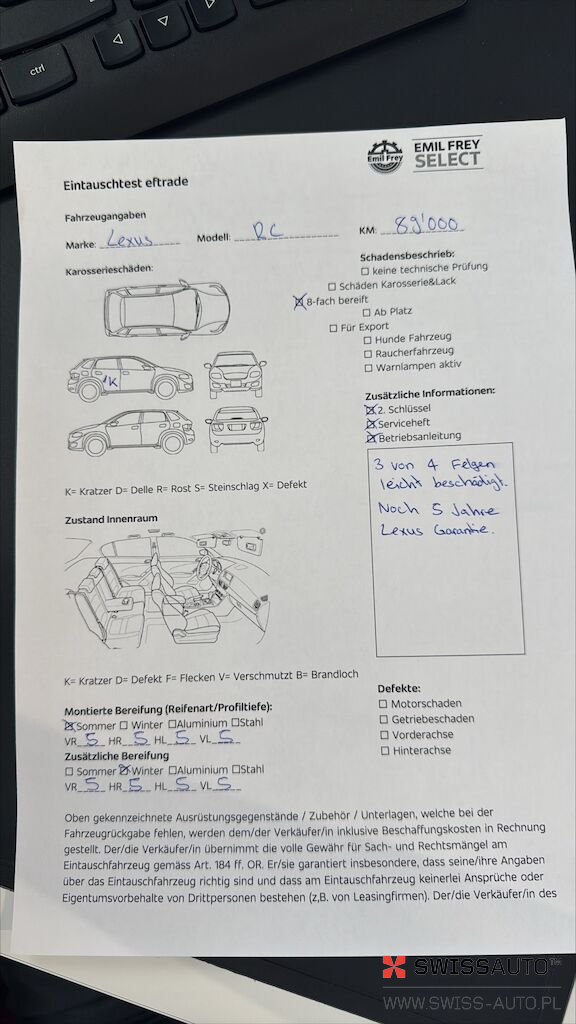 ctrl
Emil Frey
EMIL FREY
SELECT
Eintauschtest eftrade
Fahrzeugangaben
Marke: Lexus Modell: RC KM: 89'000
Karosserieschäden:
Schadensbeschrieb:
☐ keine technische Prüfung
☐ Schäden Karosserie&Lack
☒ 8-fach bereift
☐ Ab Platz
☐ Für Export
☐ Hunde Fahrzeug
☐ Raucherfahrzeug
☐ Warnlampen aktiv
K
Zusätzliche Informationen:
☒ 2. Schlüssel
☒ Serviceheft
☒ Betriebsanleitung
3 von 4 Felgen
leicht beschädigt.
Noch 5 Jahre
Lexus Garantie.
K= Kratzer D= Delle R= Rost S= Steinschlag X= Defekt
Zustand Innenraum
K= Kratzer D= Defekt F= Flecken V= Verschmutzt B= Brandloch
Montierte Bereifung (Reifenart/Profiltiefe):
☒ Sommer ☐ Winter ☐Aluminium ☐Stahl
VR 5 HR 5 HL 5 VL 5
Zusätzliche Bereifung
☐ Sommer ☒ Winter ☐Aluminium ☐Stahl
VR 5 HR 5 HL 5 VL 5
Defekte:
☐ Motorschaden
☐ Getriebeschaden
☐ Vorderachse
☐ Hinterachse
Oben gekennzeichnete Ausrüstungsgegenstände / Zubehör / Unterlagen, welche bei der
Fahrzeugrückgabe fehlen, werden dem/der Verkäufer/in inklusive Beschaffungskosten in Rechnung
gestellt. Der/die Verkäufer/in übernimmt die volle Gewähr für Sach- und Rechtsmängel am
Eintauschfahrzeug gemäss Art. 184 ff. OR. Er/sie garantiert insbesondere, dass seine/ihre Angaben
über das Eintauschfahrzeug richtig sind und dass am Eintauschfahrzeug keinerlei Ansprüche oder
Eigentumsvorbehalte von Drittpersonen bestehen (z,B. von Leasingfirmen). Der/die Verkäufer/in des
SWISSAUTO
WWW.SWISS-AUTO.PL